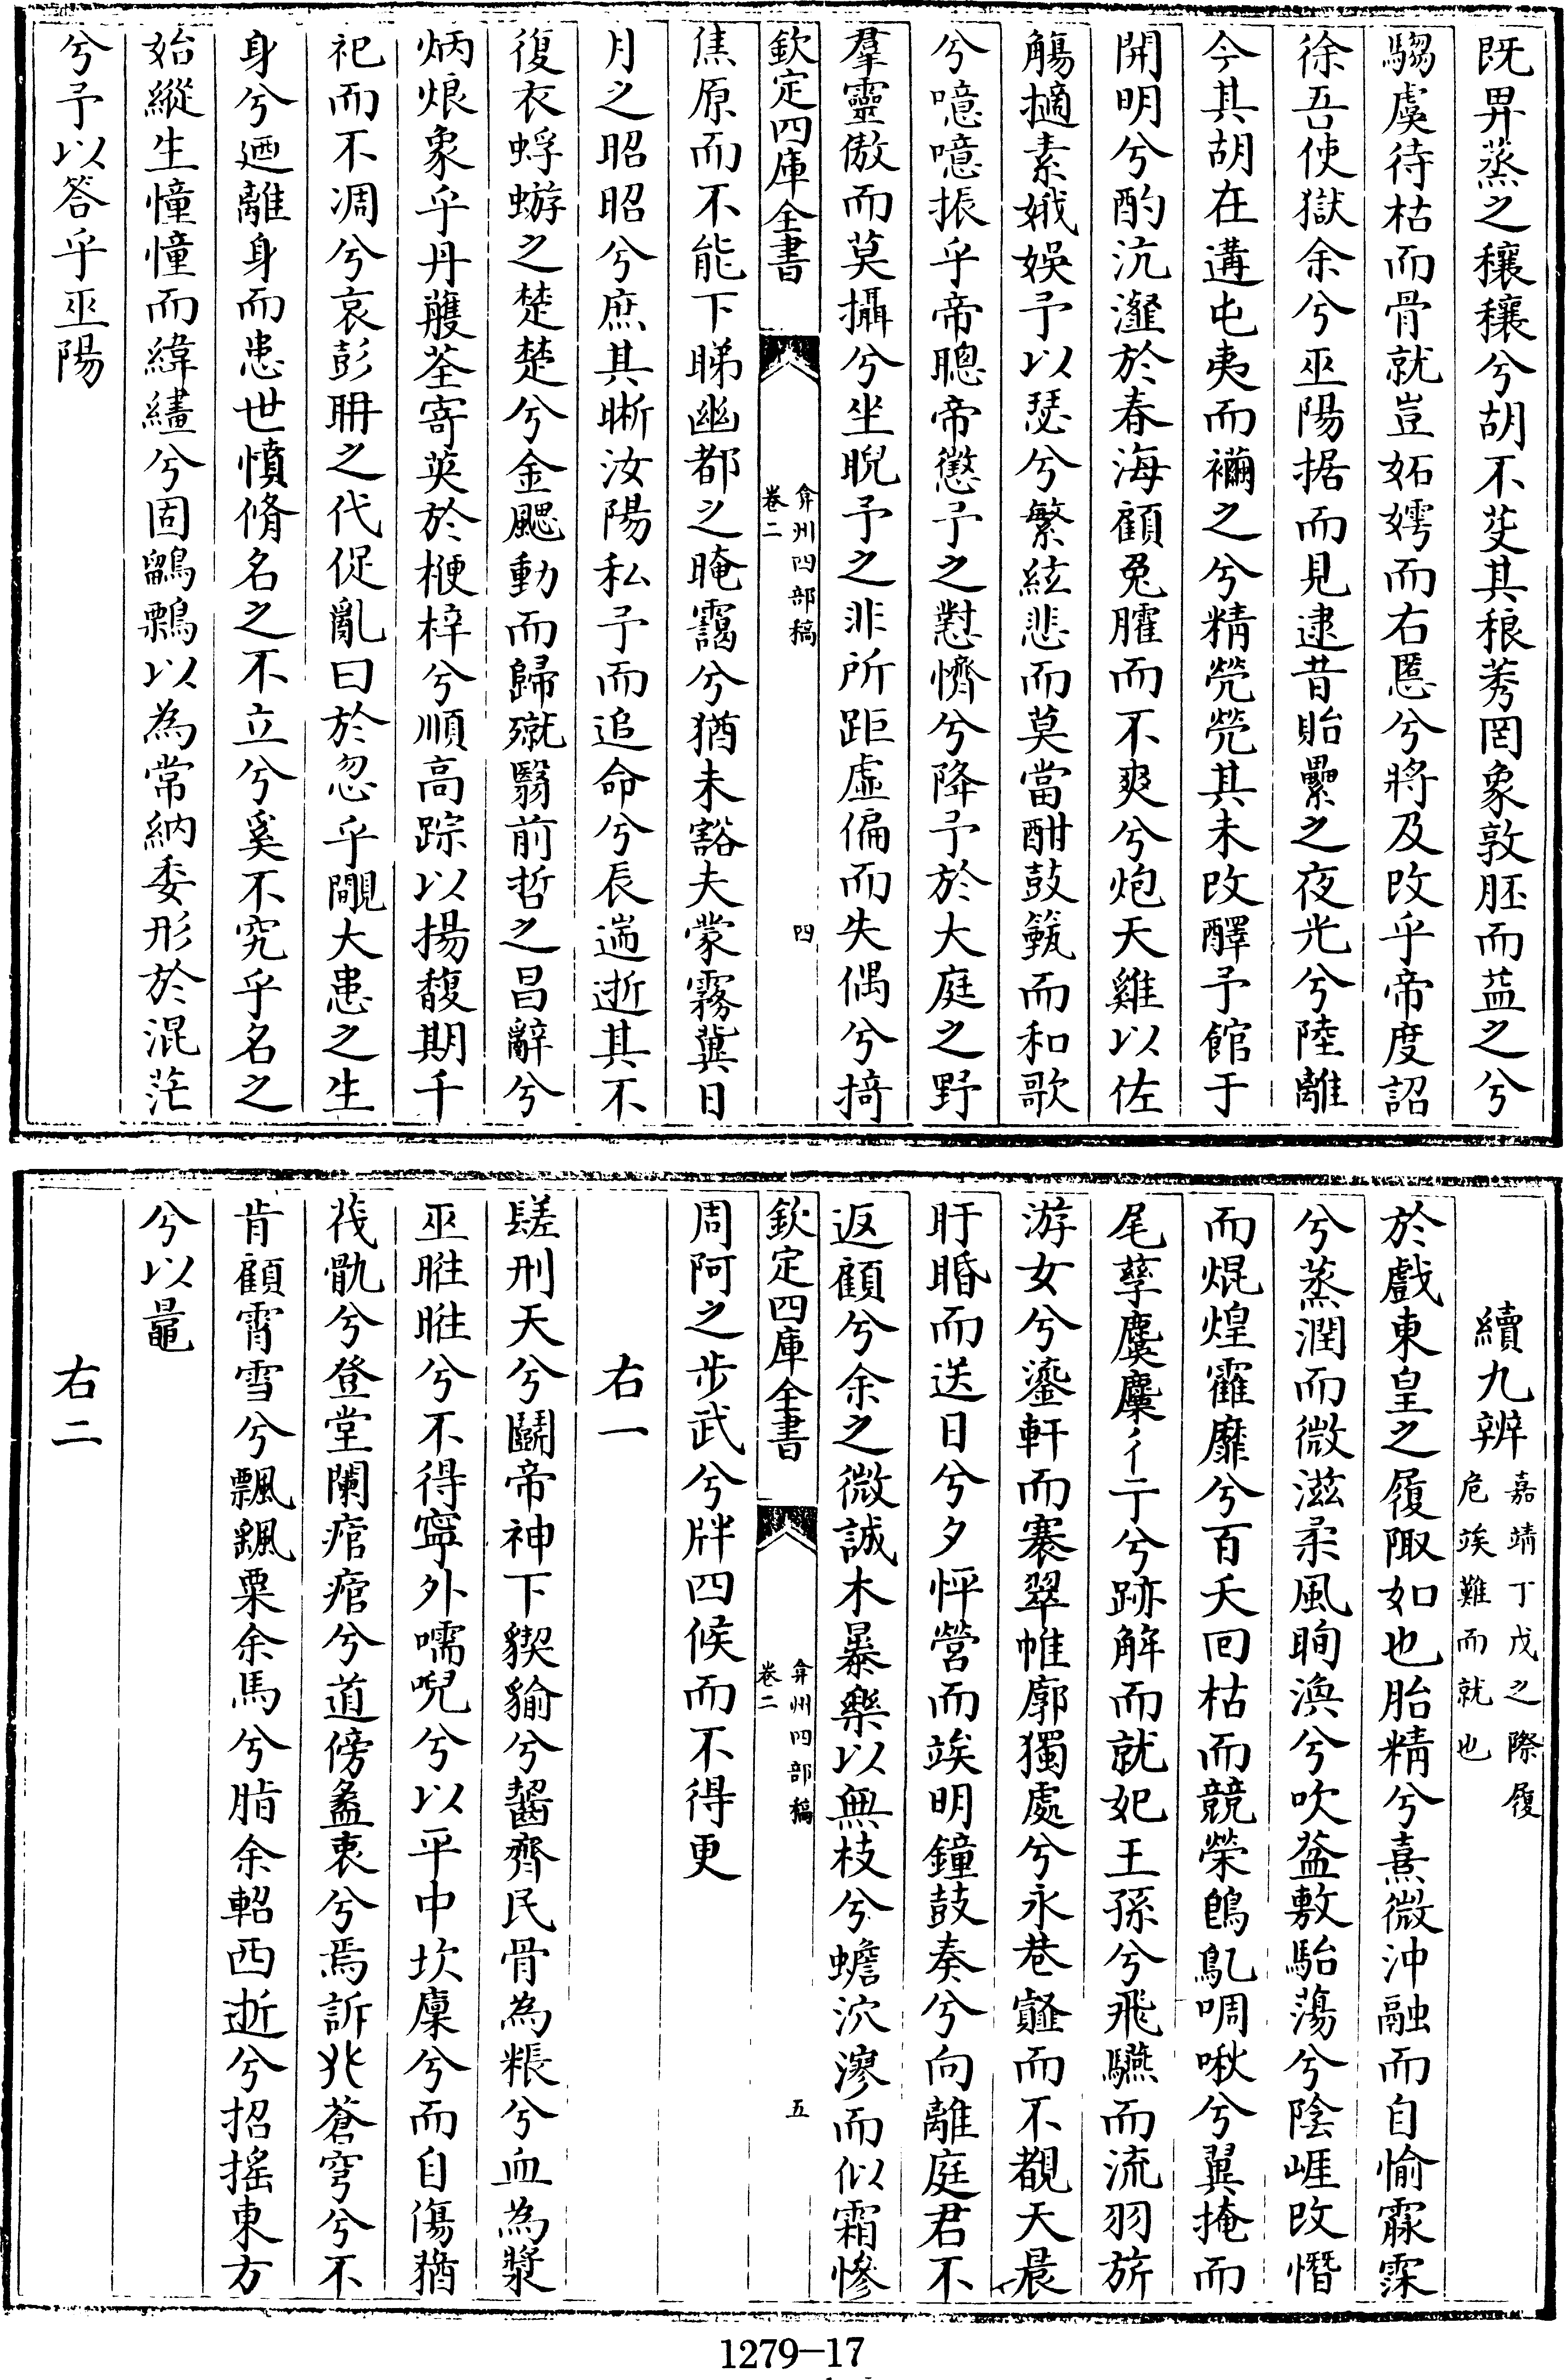 既畀蒸之穰穰兮胡不芟其稂莠罔象敦胚而益之兮
騶虞待枯而骨就豈妬嫮而右慝兮將及改乎帝度詔
徐吾使獄余兮巫陽据而見逮昔貽纍之夜光兮陸離
今其胡在遘屯夷而襧之兮精焭焭其未改醳予館于
開明兮酌沆瀣於春海顧兔臛而不爽兮炮天雞以佐
觴擿素娥娛予以瑟兮繁絃悲而莫當酣鼓籈而和歌
兮噫噫振乎帝聰帝懲予之懟懠兮降予於大庭之野
羣靈傲而莫攝兮坐睨予之非所距虛偏而失偶兮掎
欽定四庫全書
弇州四部稿
卷二
四
焦原而不能下睇幽都之晻靄兮猶未豁夫蒙霧冀日
月之昭昭兮庶其晣汝陽私予而追命兮辰遄逝其不
復衣蜉蝣之楚楚兮金颸動而歸殧翳前哲之昌辭兮
炳烺象乎丹雘荃寄英於楩梓兮順高踪以揚馥期千
祀而不凋兮哀彭聃之代促亂曰於忽乎覵大患之生
身兮迺離身而患世憤脩名之不立兮奚不究乎名之
始縱生憧憧而緯繣兮固鷃鷅以為常納委形於混茫
兮予以答乎巫陽
續九辨
嘉靖丁戊之際履
危竢難而就也
於戲東皇之履陬如也胎精兮熹微沖融而自愉霡霂
兮蒸潤而微滋柔風眴渙兮吹益敷駘蕩兮陰崕改憯
而焜煌靃靡兮百夭回枯而競榮鴝鳦啁啾兮翼掩而
尾孳麌麋彳亍兮跡解而就妃王孫兮飛驠而流羽旂
游女兮鎏軒而褰翠帷廓獨處兮永巷竁而不覩天晨
盱昏而送日兮夕怦營而竢明鐘鼓奏兮向離庭君不
返顧兮余之微誠木暴樂以無枝兮蟾泬漻而似霜慘
欽定四庫全書
弇州四部稿
卷二
五
周阿之步武兮牉四候而不得更
右一
髸刑天兮鬭帝神下貏貐兮齧齊民骨為粻兮血為漿
巫暀暀兮不得寧外嚅唲兮以平中坎廩兮而自傷猶
筏骩兮登堂闌痯痯兮道傍蠡衷兮焉訴兆蒼穹兮不
肯顧霄雪兮飄颻粟余馬兮脂余軺西逝兮招摇東方
兮以鼂
右二
1279—17